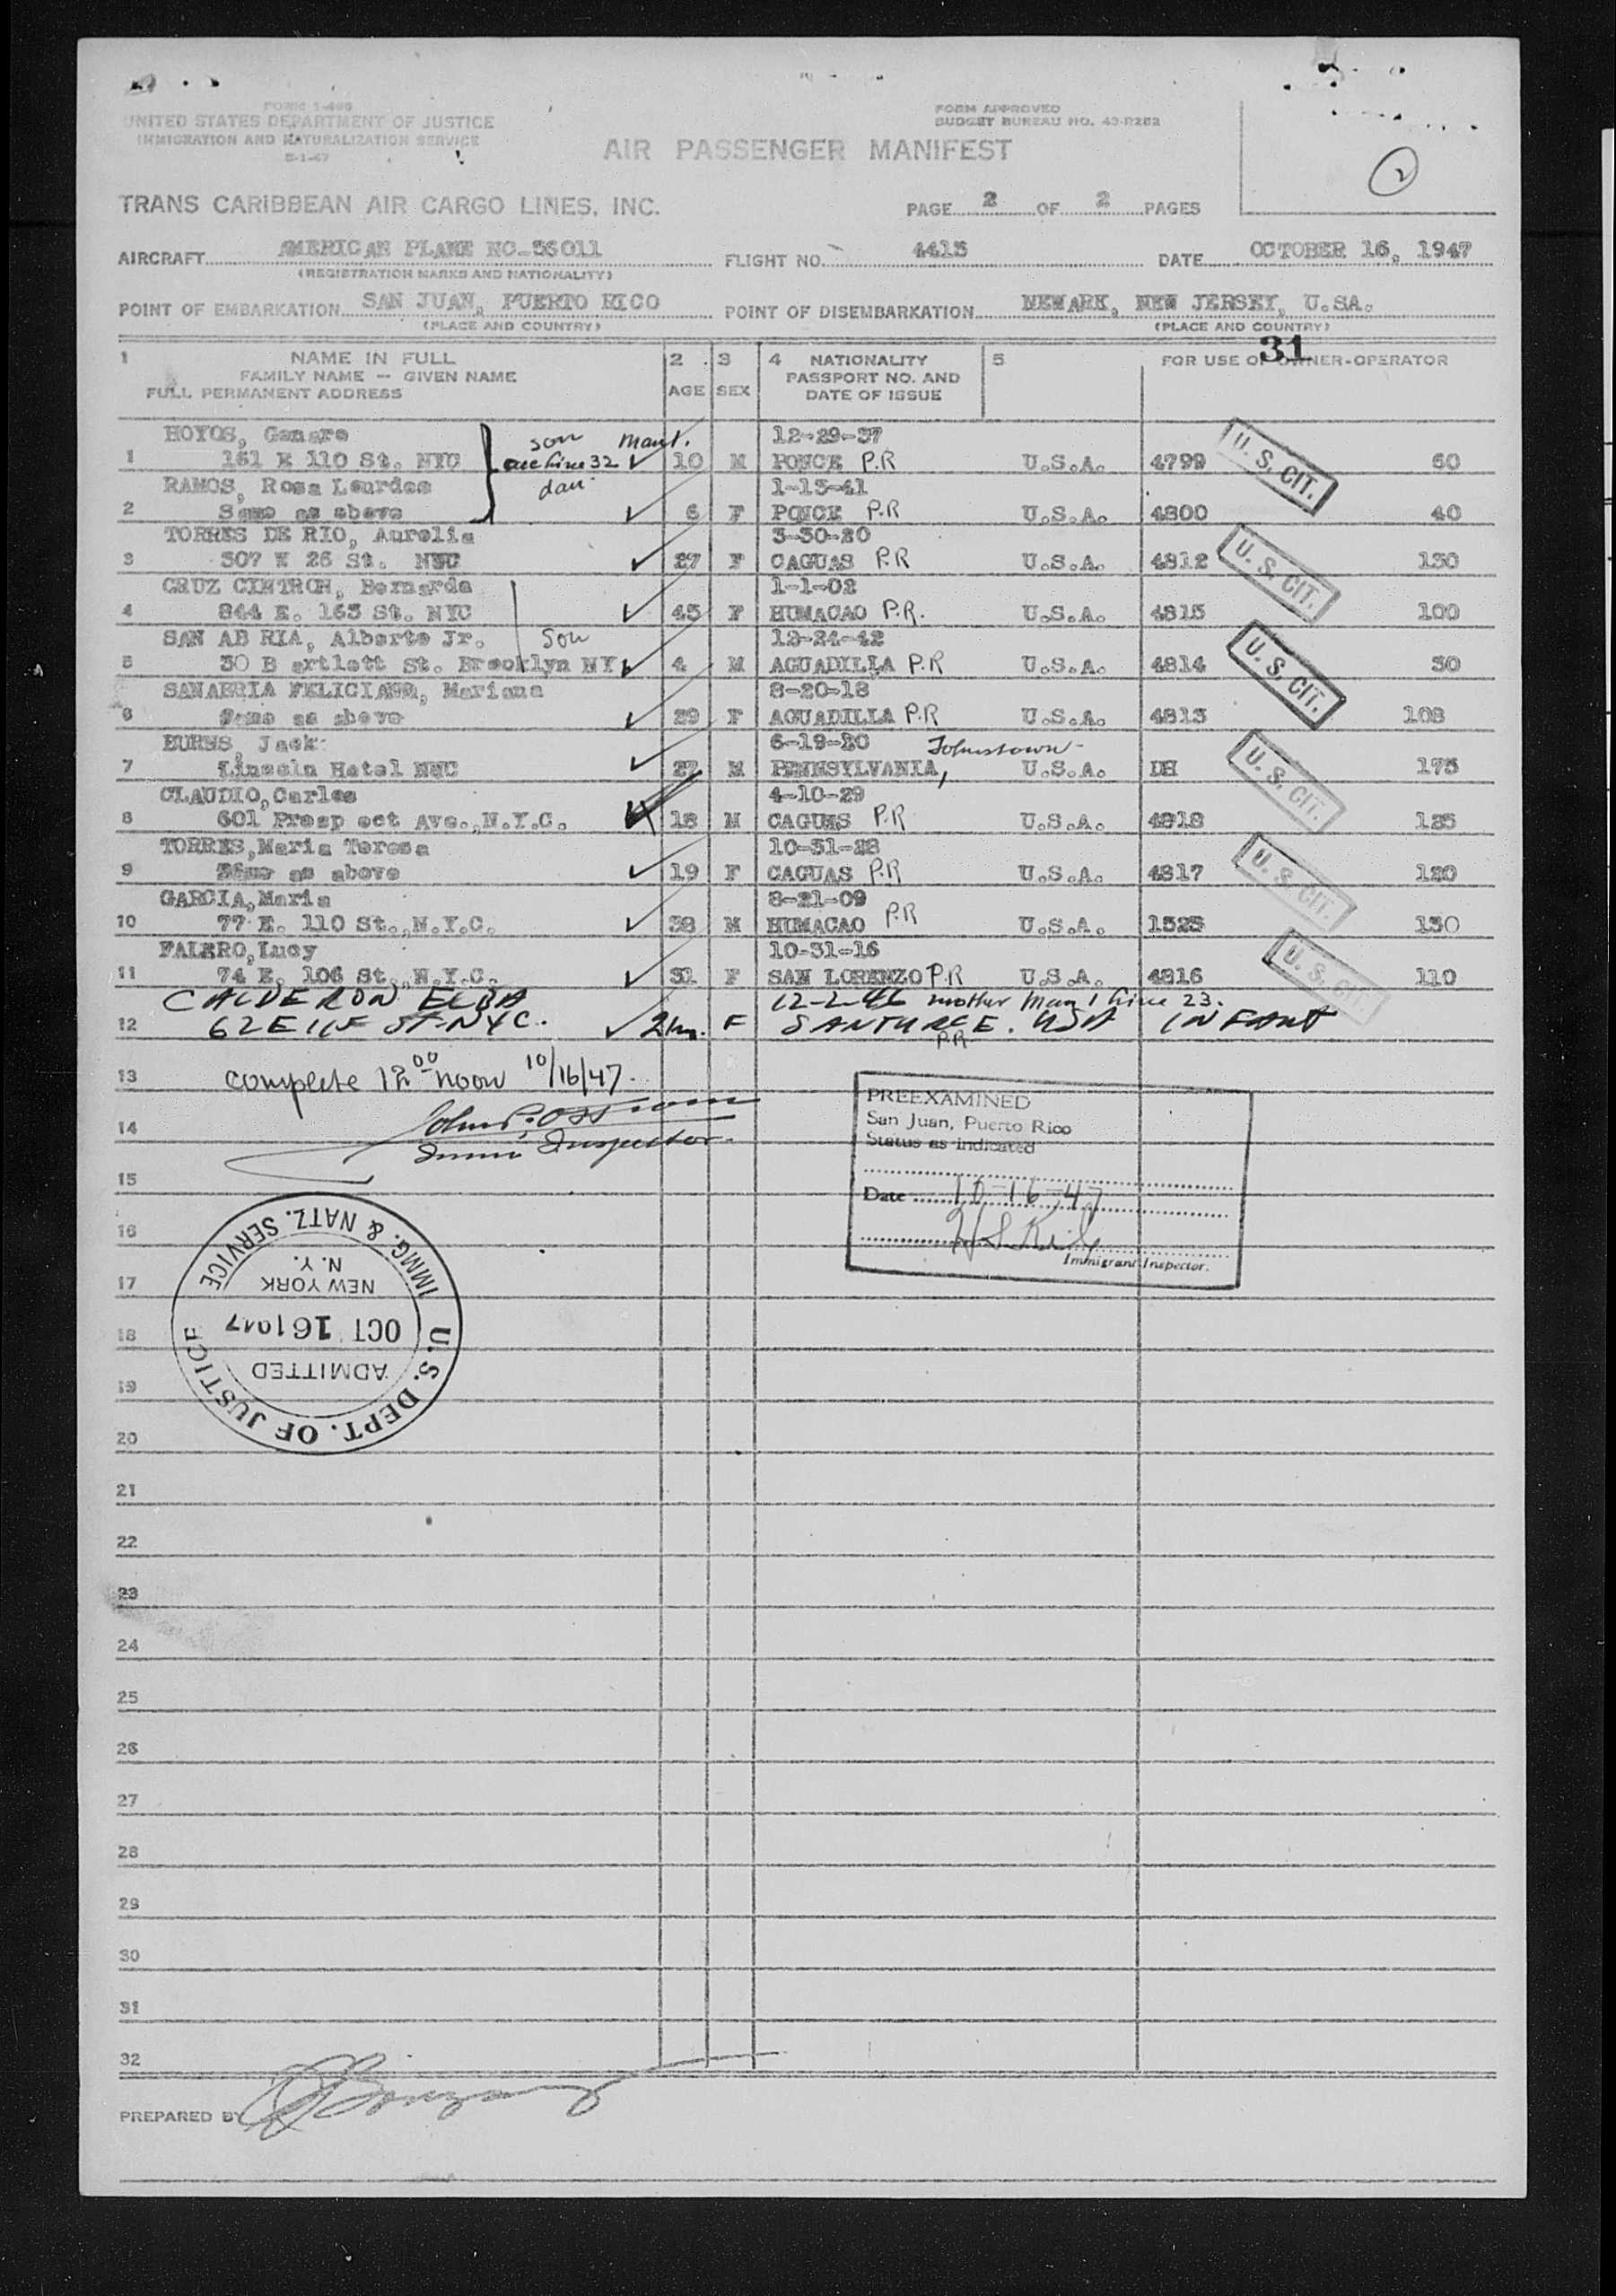 FORM I-466
UNITED STATES DEPARTMENT OF JUSTICE
IMMIGRATION AND NATURALIZATION SERVICE
5-1-47
FORM APPROVED
BUDGET BUREAU NO. 43-R282
AIR PASSENGER MANIFEST
2
TRANS CARIBBEAN AIR CARGO LINES, INC.
PAGE 2 OF 2 PAGES
AIRCRAFT AMERICAN PLANE NC-36011 FLIGHT NO. 4413 DATE OCTOBER 16, 1947
(REGISTRATION MARKS AND NATIONALITY)
POINT OF EMBARKATION SAN JUAN, PUERTO RICO POINT OF DISEMBARKATION NEWARK, NEW JERSEY, U.SA.
(PLACE AND COUNTRY) (PLACE AND COUNTRY)
31
1 NAME IN FULL 2 3 4 NATIONALITY 5 FOR USE OF OWNER-OPERATOR
FAMILY NAME -- GIVEN NAME PASSPORT NO. AND
FULL PERMANENT ADDRESS AGE SEX DATE OF ISSUE
HOYOS, Genaro son 12-29-37
1 151 E 110 St. NYC line 32 10 M PONCE P.R U.S.A. 4799 60
RAMOS, Rosa Lourdes dau. 1-13-41
2 Same as above 6 F PONCE P.R U.S.A. 4800 40
TORRES DE RIO, Aurelia 3-30-20
3 307 W 26 St. NYC 27 F CAGUAS P.R U.S.A. 4812 130
CRUZ CINTRON, Bernarda 1-1-02
4 844 E. 163 St. NYC 45 F HUMACAO P.R. U.S.A. 4815 100
SAN AB RIA, Alberto Jr. Son 12-24-42
5 30 B artlett St. Brooklyn NY 4 M AGUADILLA P.R U.S.A. 4814 30
SANABRIA FELICIANO, Mariana 8-20-18
6 Same as above 29 F AGUADILLA P.R U.S.A. 4813 108
BURNS, Jack 6-19-20 Johnstown-
7 Lincoln Hotel NYC 27 M PENNSYLVANIA, U.S.A. DH 175
CLAUDIO, Carlos 4-10-29
8 601 Prosp ect Ave., N.Y.C. 18 M CAGUAS P.R U.S.A. 4818 125
TORRES, Maria Teresa 10-31-28
9 Same as above 19 F CAGUAS P.R U.S.A. 4817 120
GARCIA, Maria 8-21-09
10 77 E. 110 St., N.Y.C. 38 M HUMACAO P.R U.S.A. 1525 130
FALERO, Lucy 10-31-16
11 74 E. 106 St., N.Y.C. 31 F SAN LORENZO P.R U.S.A. 4816 110
CALDERON ELBA 12-2-46 mother Man 1 line 23.
12 62 E 115 ST. NYC. F SANTURCE. USA INFANT
P.R
U. S. CIT.
U. S. CIT.
U. S. CIT.
U. S. CIT.
U. S. CIT.
U. S. CIT.
13 complete 12 00 noon 10/16/47.
14 Inspector
15
PREEXAMINED
San Juan, Puerto Rico
Status as indicated
Date 10-16-47
Immigrant Inspector.
16
17
18
19
20
U. S. DEPT. OF JUSTICE
IMMG. & NATZ. SERVICE
NEW YORK
N. Y.
OCT 16 1947
ADMITTED
21
22
23
24
25
26
27
28
29
30
31
32
PREPARED BY